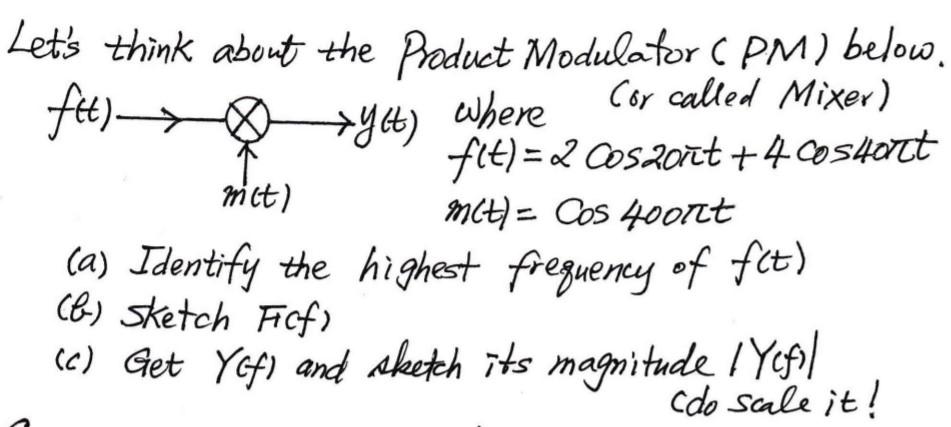 Let's think about the Product Modulator (PM) below.
(or called Mixer)
f(t) → ⊗ → y(t) where
f(t) = 2 Cos20πt + 4 Cos40πt
m(t)
m(t) = Cos 400πt
(a) Identify the highest frequency of f(t)
(b) Sketch F(f)
(c) Get Y(f) and sketch its magnitude |Y(f)|
(do scale it!